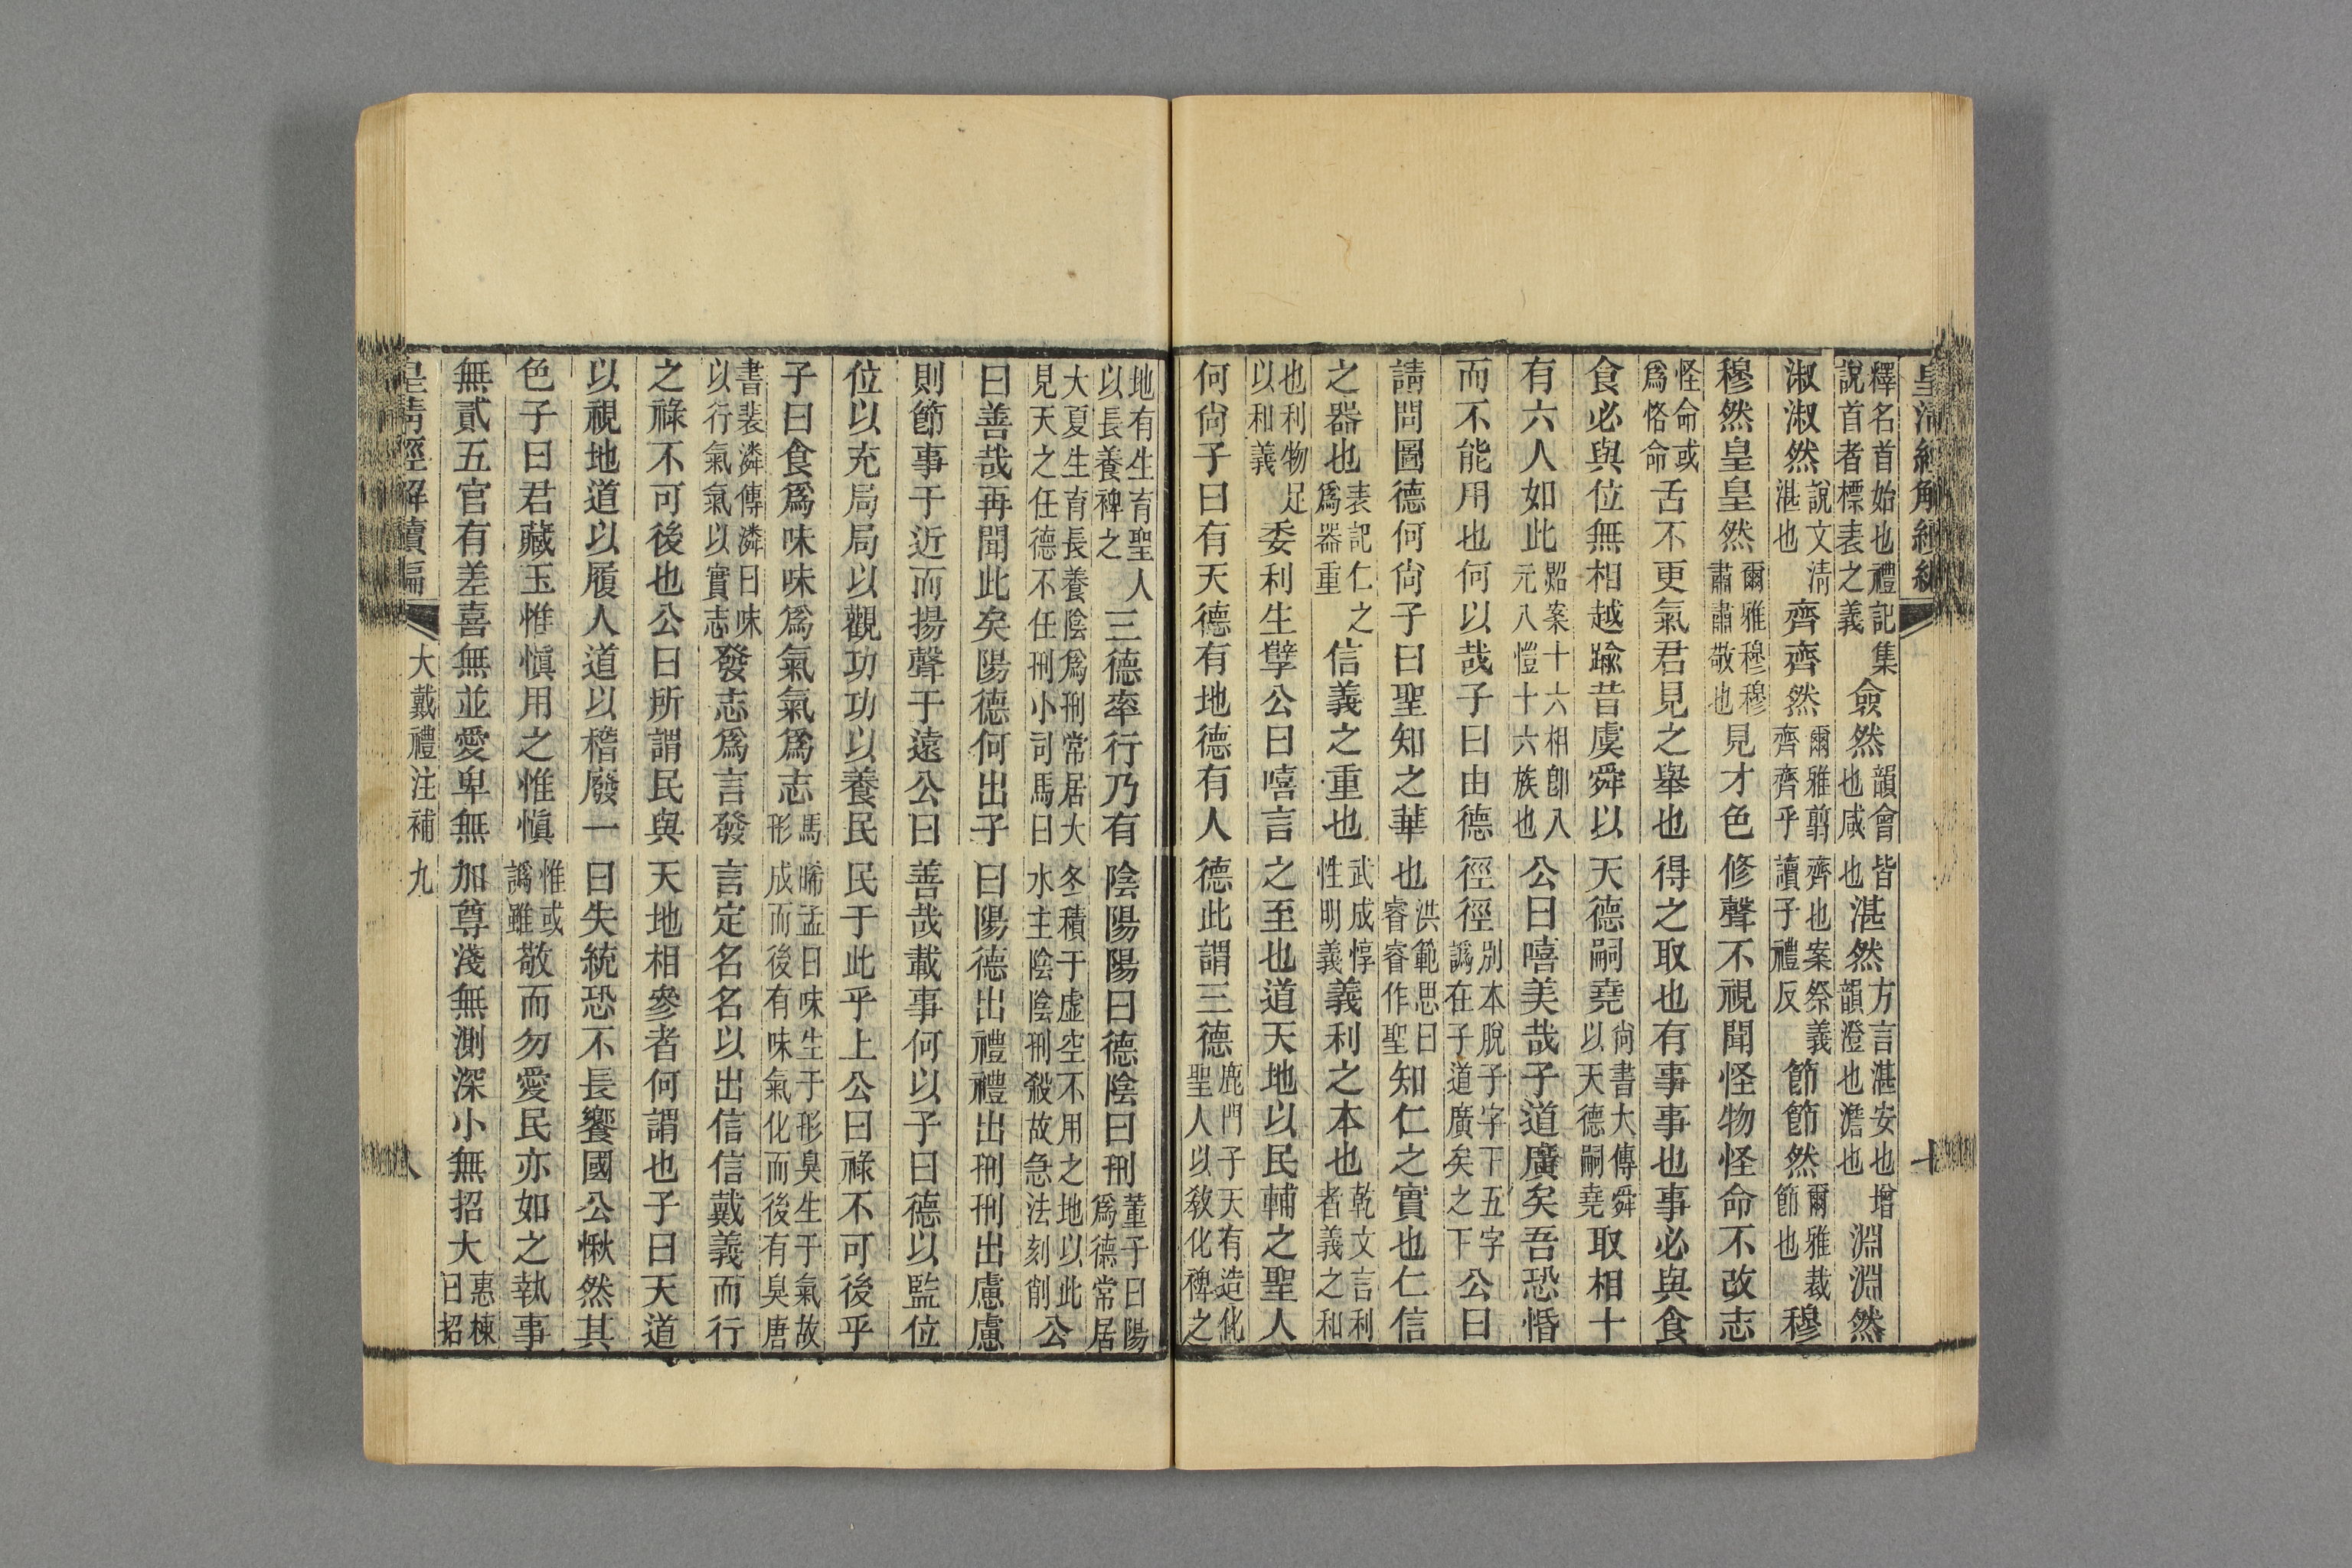 皇清經解續編
釋名首始也禮記集說首者標表之義僉然韻會皆也咸也湛然方言湛安也增韻澄也澹也淵淵然
淑淑然說文淑清湛也齊齊然爾雅翦齊也案祭義齊齊乎讀子禮反節節然爾雅裁節也穆
穆然皇皇然爾雅穆穆肅肅敬也見才色修聲不視聞怪物怪命不改志
怪命或爲恪命舌不更氣君見之舉也得之取也有事事也事必與食
食必與位無相越踰昔虞舜以天德嗣堯尙書大傳舜以天德嗣堯取相十
有六人如此㷖案十六相卽八元八愷十六族也公曰嘻美哉子道廣矣吾恐惛
而不能用也何以哉子曰由德徑徑別本脫子字下五字譌在子道廣矣之下公曰
請問圖德何尙子曰聖知之華也洪範思曰睿睿作聖知仁之實也仁信
之器也表記仁之爲器重信義之重也武成惇性明義義利之本也乾文言利者義之和
也利物足以和義委利生孽公曰嘻言之至也道天地以民輔之聖人
何尙子曰有天德有地德有人德此謂三德鹿門子天有造化聖人以敎化裨之
地有生育聖人以長養裨之三德率行乃有陰陽陽曰德陰曰刑董子曰陽爲德常居
大夏生育長養陰爲刑常居大冬積于虛空不用之地以此見天之任德不任刑小司馬曰水主陰陰刑殺故急法刻削公
曰善哉再聞此矣陽德何出子曰陽德出禮禮出刑刑出慮慮
則節事于近而揚聲于遠公曰善哉載事何以子曰德以監位
位以充局局以觀功功以養民民于此乎上公曰祿不可後乎
子曰食爲味味爲氣氣爲志馬晞孟曰味生于形臭生于氣故形成而後有味氣化而後有臭唐
書裴潾傳潾曰味以行氣氣以實志發志爲言發言定名名以出信信戴義而行
之祿不可後也公曰所謂民與天地相參者何謂也子曰天道
以視地道以履人道以稽廢一曰失統恐不長饗國公愀然其
色子曰君藏玉惟愼用之惟愼惟或譌雖敬而勿愛民亦如之執事
無貳五官有差喜無並愛卑無加尊淺無測深小無招大惠棟曰招
皇清經解續編 大戴禮注補 九